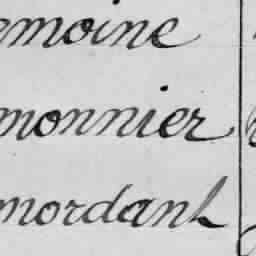 emoine
monnier
mordant